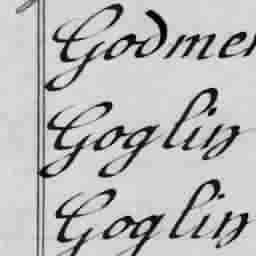 Godmer
Goglin
Goglin